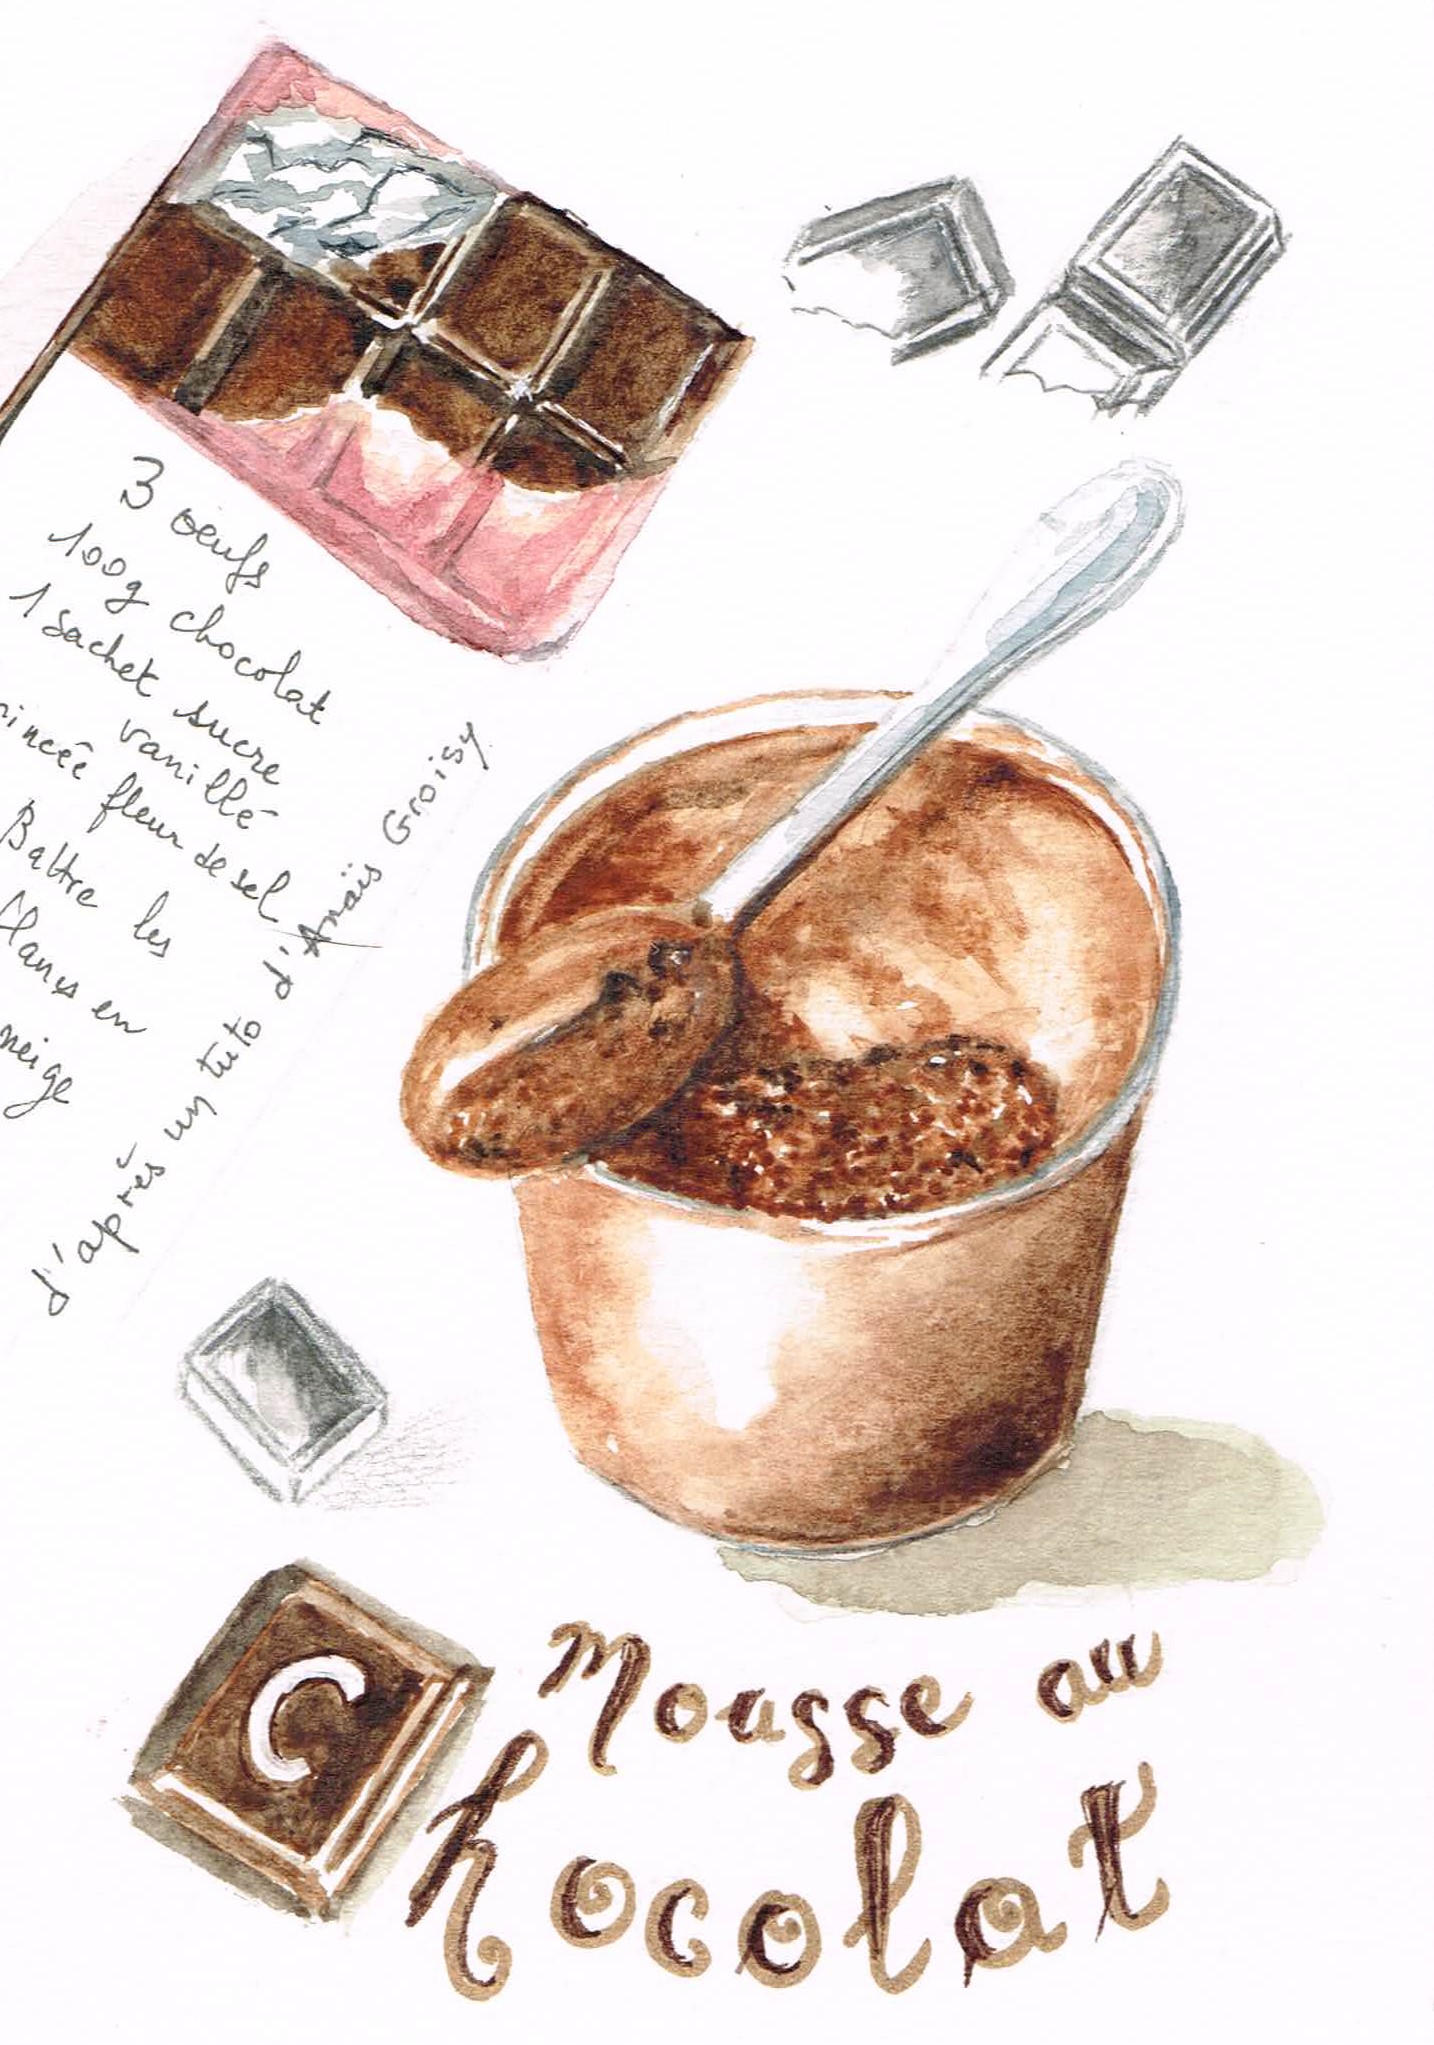 3 oeufs
100g chocolat
1 sachet sucre
vanillé
pincée fleur de sel
Battre les
blancs en
neige
d'après un tuto d'Anaïs Groisy
Mousse au
Chocolat